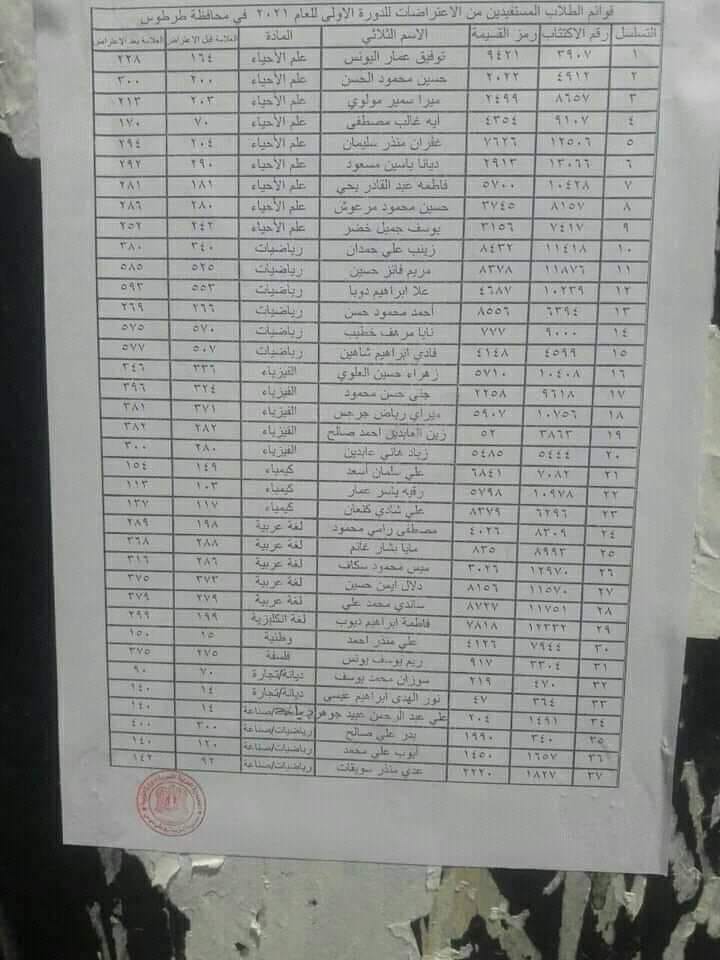 قوائم الطلاب المستفيدين من الاعتراضات للدورة الاولى للعام ٢٠٢١ في محافظة طرطوس
التسلسل رقم الاكتتاب رمز القسيمة الاسم الثلاثي المادة العلامة قبل الاعتراض العلامة بعد الاعتراض
١ ٣٩٠٧ ٩٤٢١ توفيق عمار اليونس علم الأحياء ١٦٤ ٢٢٨
٢ ٤٩١٢ ٢٠٢٢ حسين محمود الحسن علم الأحياء ٢٠٠ ٣٠٠
٣ ٨٦٥٧ ٢٤٩٩ ميرا سمير مولوي علم الأحياء ٢٠٣ ٢١٣
٤ ٩١٠٧ ٤٣٥٤ ايه غالب مصطفى علم الأحياء ٧٠ ١٧٠
٥ ١٢٥٠٦ ٧٦٢٦ غفران منذر سليمان علم الأحياء ٢٠٤ ٢٩٤
٦ ١٣٠٦٦ ٢٩١٣ ديانا ياسين مسعود علم الأحياء ٢٩٠ ٢٩٢
٧ ١٠٤٢٨ ٥٧٠٠ فاطمه عبد القادر يحي علم الأحياء ١٨١ ٢٨١
٨ ٨١٥٧ ٣٧٤٥ حسين محمود مرعوش علم الأحياء ٢٨٠ ٢٨٦
٩ ٧٤١٧ ٣١٥٦ يوسف جميل خضر علم الأحياء ٢٤٢ ٢٥٢
١٠ ١١٤١٨ ٨٤٣٢ زينب علي حمدان رياضيات ٣٤٠ ٣٨٠
١١ ١١٨٧٦ ٨٣٧٨ مريم فائز حسين رياضيات ٥٢٥ ٥٨٥
١٢ ١٠٢٣٩ ٤٦٨٧ علا ابراهيم دوبا رياضيات ٥٥٣ ٥٩٣
١٣ ٦٣٩٤ ٨٥٥٦ احمد محمود حسن رياضيات ٢٦٦ ٢٦٩
١٤ ٩٠٠٠ ٧٧٧ نايا مرهف خطيب رياضيات ٥٧٠ ٥٧٥
١٥ ٤٥٩٩ ٤١٤٨ فادي ابراهيم شاهين رياضيات ٥٠٧ ٥٧٧
١٦ ١٠٤٠٨ ٥٧١٠ زهراء حسين العلوي الفيزياء ٣٣٦ ٣٤٦
١٧ ٩٦١٨ ٢٢٥٨ جنى حسن محمود الفيزياء ٣٢٤ ٣٩٦
١٨ ١٠٧٥٦ ٥٩٠٧ ميراي رياض جرجس الفيزياء ٣٧١ ٣٨١
١٩ ٣٨٦٣ ٥٢ زين العابدين احمد صالح الفيزياء ٢٨٢ ٣٨٢
٢٠ ٥٤٤٤ ٥٤٨٥ زياد هاني عابدين الفيزياء ٢٨٠ ٣٠٠
٢١ ٧٠٨٢ ٦٨٤١ علي سلمان اسعد كيمياء ١٤٩ ١٥٤
٢٢ ١٠٩٧٨ ٥٧٩٨ رقيه ياسر عمار كيمياء ١٠٣ ١١٣
٢٣ ٦٢٩٦ ٨٣٧٩ علي شادي كنعان كيمياء ١١٧ ١٣٧
٢٤ ٨٣٠٩ ٤٠٢٦ مصطفى رامي محمود لغة عربية ١٩٨ ٢٨٩
٢٥ ٨٩٩٣ ٨٣٥ مايا بشار غانم لغة عربية ٢٨٨ ٣٦٨
٢٦ ١٢٩٧٠ ٣٠٢٦ ميس محمود سكاف لغة عربية ٢٨٦ ٣١٦
٢٧ ١١٥٧٠ ٨١٥٦ دلال ايمن حسين لغة عربية ٣٧٣ ٣٧٥
٢٨ ١١٧٥١ ٨٧٢٧ ساندي محمد علي لغة عربية ٢٧٩ ٣٧٩
٢٩ ١٢٣٣٢ ٧٨١٨ فاطمة ابراهيم ديوب لغة انكليزية ١٩٩ ٢٩٩
٣٠ ٧٩٤٤ ٤١٢٦ علي منذر احمد وطنية ١٥ ١٥٠
٣١ ٣٣٠٤ ٩١٧ ريم يوسف يونس فلسفة ٢٧٥ ٣٧٥
٣٢ ٤٧٠ ٢١٩ سوزان محمد يوسف ديانة/تجارة ٧٠ ٩٠
٣٣ ٣٦٤ ٤٧ نور الهدى ابراهيم عيسى ديانة/تجارة ١٤ ١٤٠
٣٤ ١٤٩١ ٢٠٤ علي عبد الرحمن عبيد جوهر /صناعة ١٤ ١٤٠
٣٥ ٣٤٠ ١٩٩٠ بدر علي صالح رياضيات/صناعة ٣٠٠ ٤٠٠
٣٦ ١٦٥٧ ١٤٥٠ ايوب علي محمد رياضيات/صناعة ١٢٠ ١٤٠
٣٧ ١٨٢٧ ٢٢٢٠ عدي منذر سويقات رياضيات/صناعة ٩٢ ١٤٢